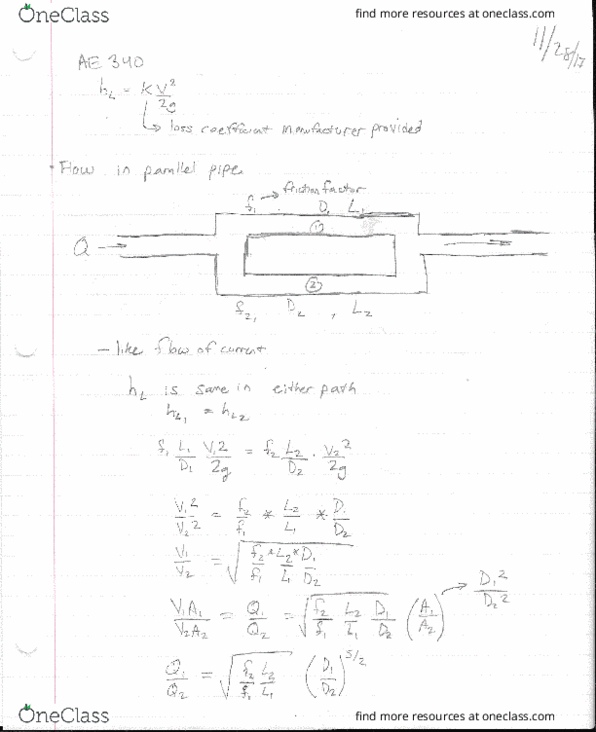 OneClass
find more resources at oneclass.com
11/28/17
AE 340
h_L = K V²/2g
↳ loss coefficient Manufacturer provided
• Flow in parallel pipe
f₁ → friction factor
D₁ L₁
①
Q →
②
f₂, D₂, L₂
- like flow of current
h_L is same in either path
h_L₁ = h_L₂
f₁ L₁/D₁ V₁²/2g = f₂ L₂/D₂ · V₂²/2g
V₁²/V₂² = f₂/f₁ * L₂/L₁ * D₁/D₂
V₁/V₂ = √(f₂/f₁ * L₂/L₁ * D₁/D₂)
V₁A₁/V₂A₂ = Q₁/Q₂ = √(f₂/f₁ L₂/L₁ D₁/D₂) (A₁/A₂) → D₁²/D₂²
Q₁/Q₂ = √(f₂/f₁ L₂/L₁) (D₁/D₂)^5/2
OneClass
find more resources at oneclass.com